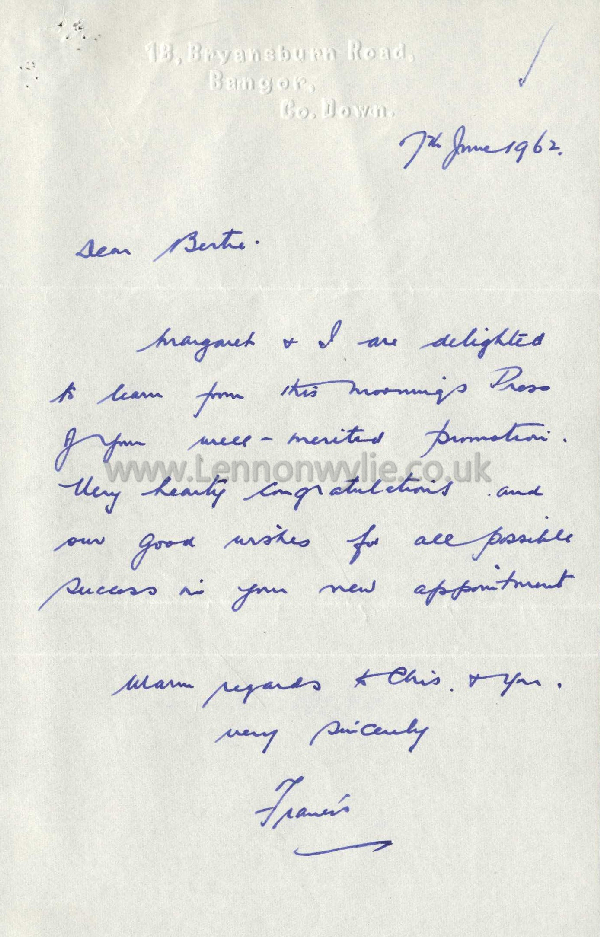 18, Bryansburn Road,
Bangor,
Co. Down.
7th June 1962.
Dear Bertie.
Margaret & I are delighted
to learn from this morning's Press
of your well-merited promotion.
www.Lennonwylie.co.uk
Very hearty congratulations and
our good wishes for all possible
success in your new appointment
Warm regards to Chris. & you.
very sincerely
Francis